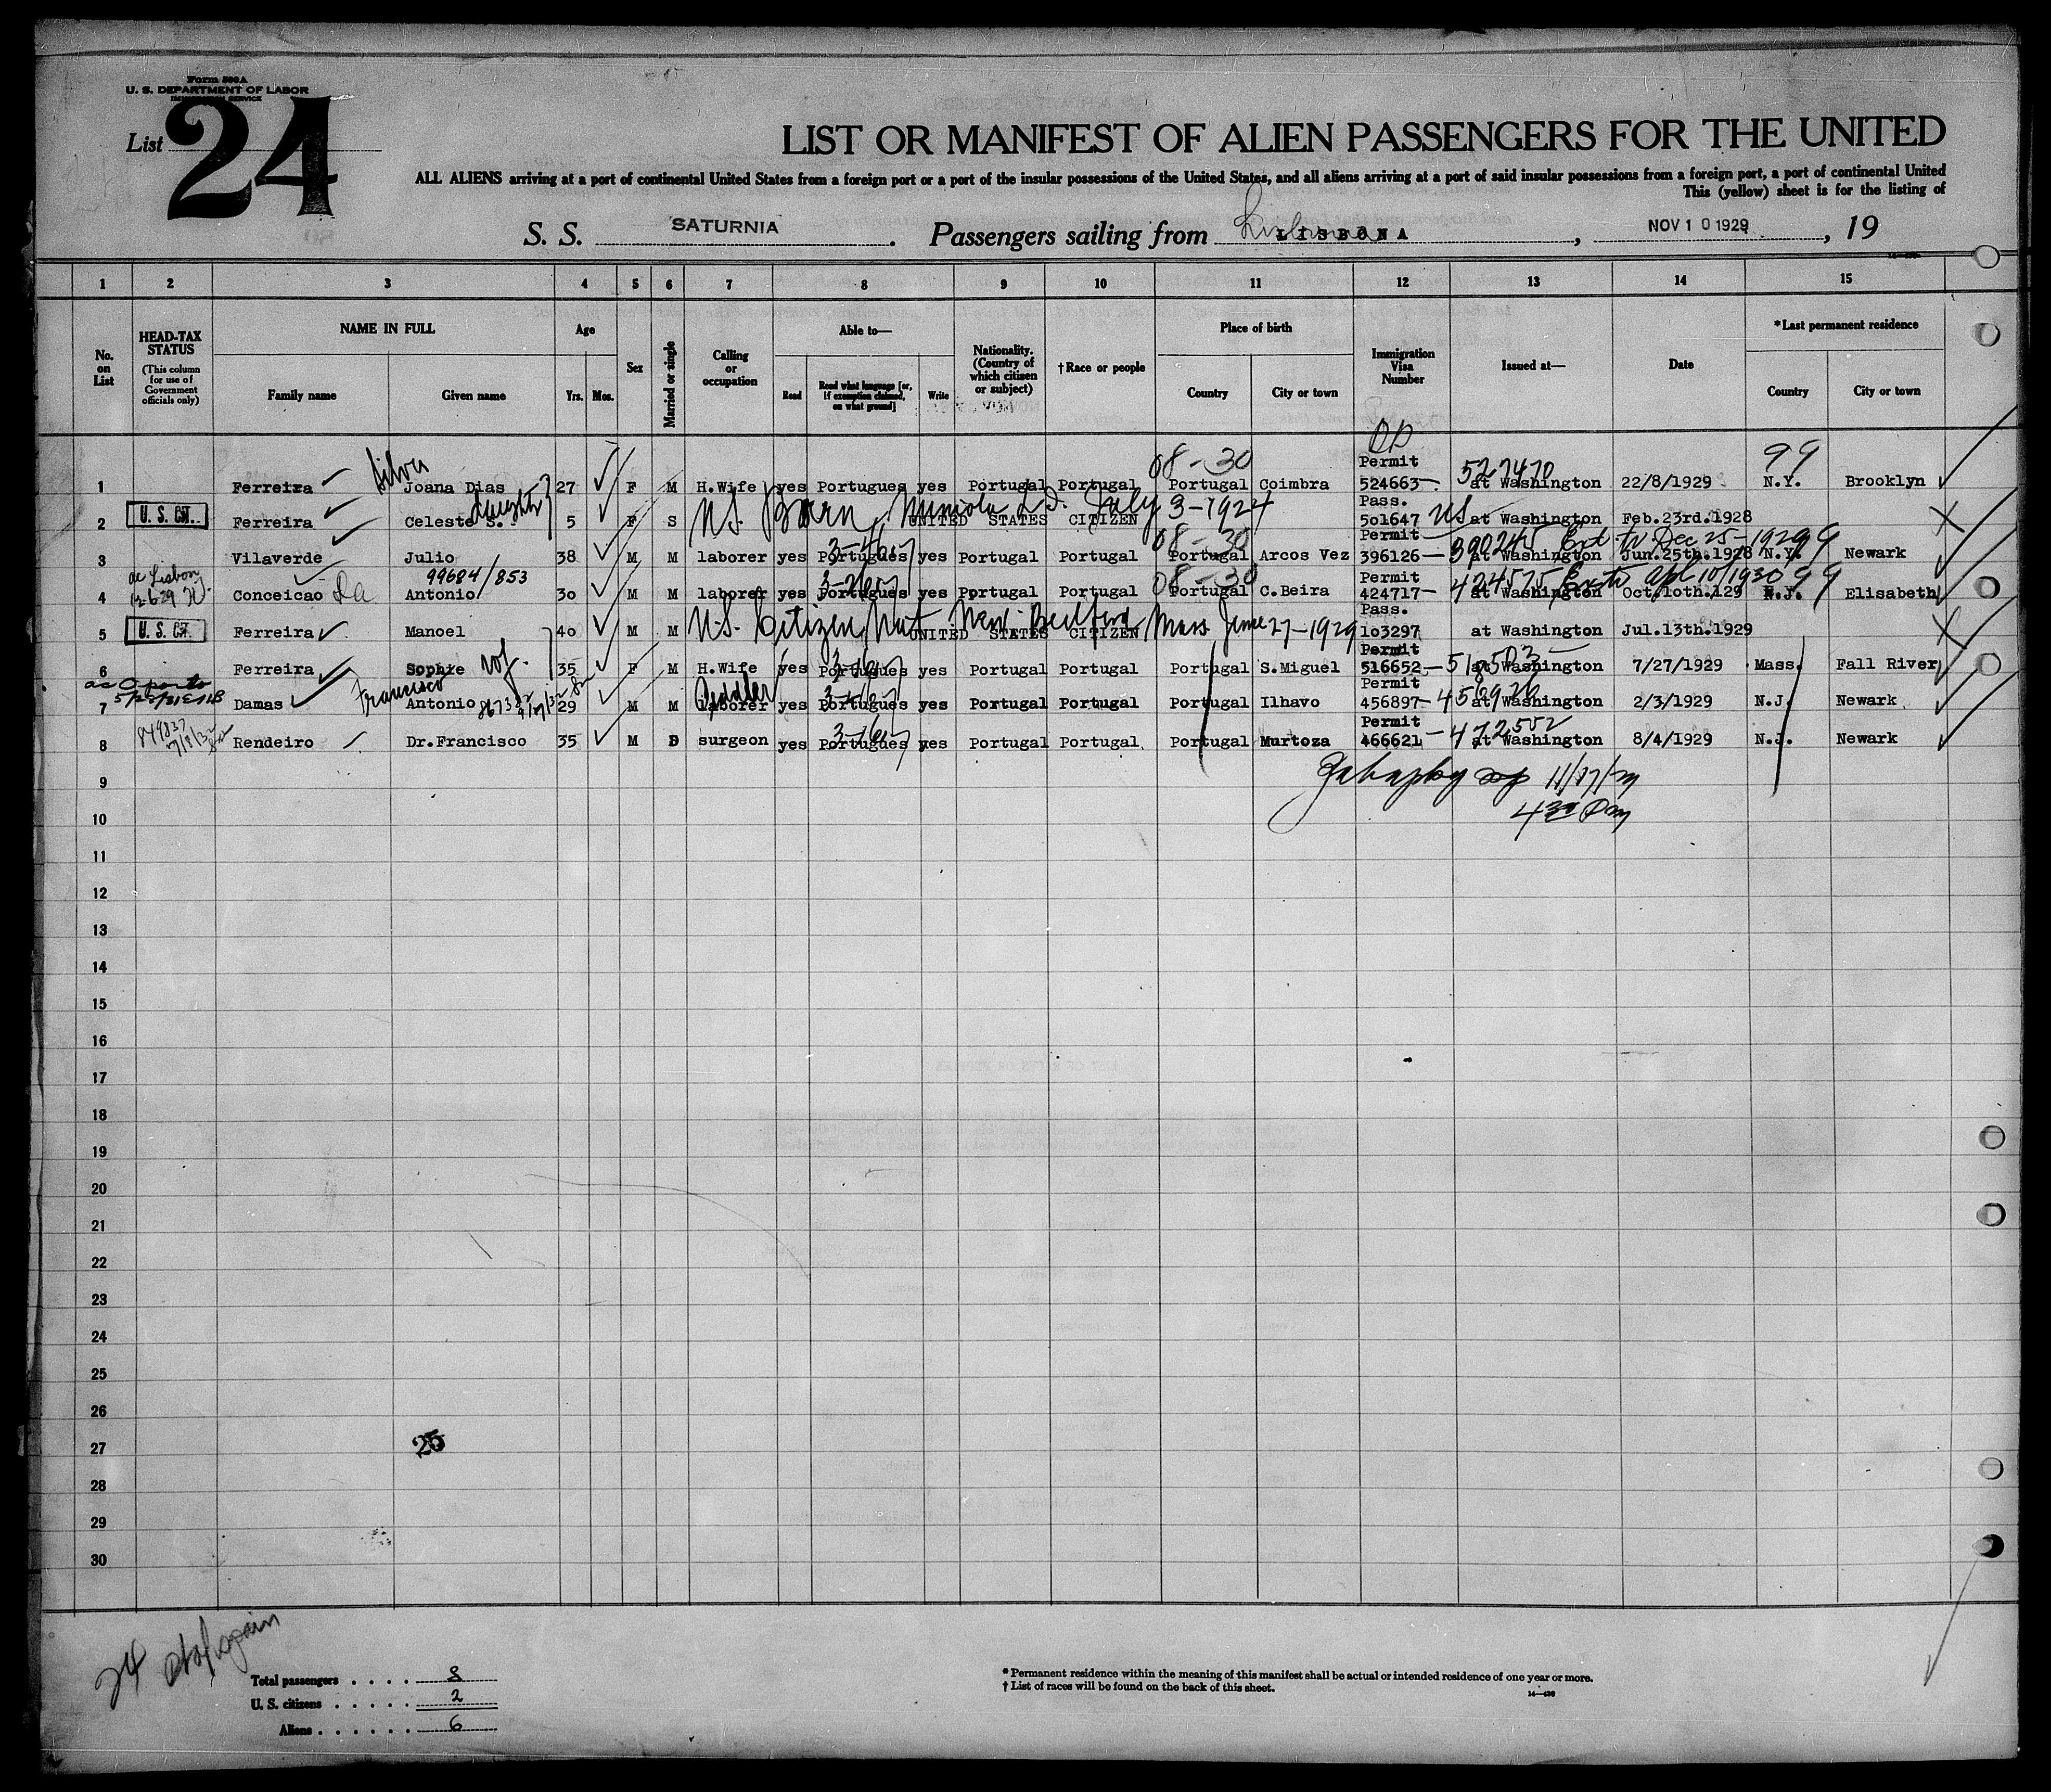 Form 500 A
U. S. DEPARTMENT OF LABOR
IMMIGRATION SERVICE
List 24
LIST OR MANIFEST OF ALIEN PASSENGERS FOR THE UNITED
ALL ALIENS arriving at a port of continental United States from a foreign port or a port of the insular possessions of the United States, and all aliens arriving at a port of said insular possessions from a foreign port, a port of continental United
This (yellow) sheet is for the listing of
S. S. SATURNIA. Passengers sailing from LISBONA, NOV 10 1929, 19
1 2 3 4 5 6 7 8 9 10 11 12 13 14 15
No. on List
HEAD-TAX STATUS
(This column for use of Government officials only)
NAME IN FULL
Family name
Given name
Age
Yrs. Mos.
Sex
Married or single
Calling or occupation
Able to—
Read
Read what language [or, if exemption claimed, on what ground]
Write
Nationality. (Country of which citizen or subject)
†Race or people
Place of birth
Country
City or town
Immigration Visa Number
Issued at—
Date
*Last permanent residence
Country
City or town
Silva 08-30 527470 99
1 Ferreira Joana Dias 27 F M H.Wife yes Portugues yes Portugal Portugal Portugal Coimbra Permit 524663 at Washington 22/8/1929 N.Y. Brooklyn
daughter
U.S. Born Mineola L.I. July 3-1924 US
2 U. S. CIT. Ferreira Celeste S. 5 F S UNITED STATES CITIZEN Pass. 501647 at Washington Feb.23rd.1928
08-30 390245 Ext to Dec 25-1929 99
3 Vilaverde Julio 38 M M laborer yes Portugues yes Portugal Portugal Portugal Arcos Vez Permit 396126 at Washington Jun.25th.1928 N.Y. Newark
Lisbon 99684/853 08-30 424575 Ext to Apl 10/1930 99
4 Conceicao Da Antonio 30 M M laborer yes Portugues yes Portugal Portugal Portugal C.Beira Permit 424717 at Washington Oct.10th.129 N.J. Elisabeth
U.S. Citizen Nat New Bedford Mass June 27-1929
5 U. S. CIT. Ferreira Manoel 40 M M UNITED STATES CITIZEN Pass. 103297 at Washington Jul.13th.1929
wf. 518503
6 Ferreira Sophie 35 F M H.Wife yes Portugues yes Portugal Portugal Portugal S.Miguel Permit 516652 at Washington 7/27/1929 Mass. Fall River
Oporto Francisco Peddler 456926
7 Damas Antonio 29 M M laborer yes Portugues yes Portugal Portugal Portugal Ilhavo Permit 456897 at Washington 2/3/1929 N.J. Newark
472502
8 Rendeiro Dr.Francisco 35 M D surgeon yes Portugues yes Portugal Portugal Portugal Murtoza Permit 466621 at Washington 8/4/1929 N.J. Newark
9
10
11
12
13
14
15
16
17
18
19
20
21
22
23
24
25
26
25
27
28
29
30
24
Total passengers . . . . 8
U. S. citizens . . . . . 2
Aliens . . . . . . 6
* Permanent residence within the meaning of this manifest shall be actual or intended residence of one year or more.
† List of races will be found on the back of this sheet.